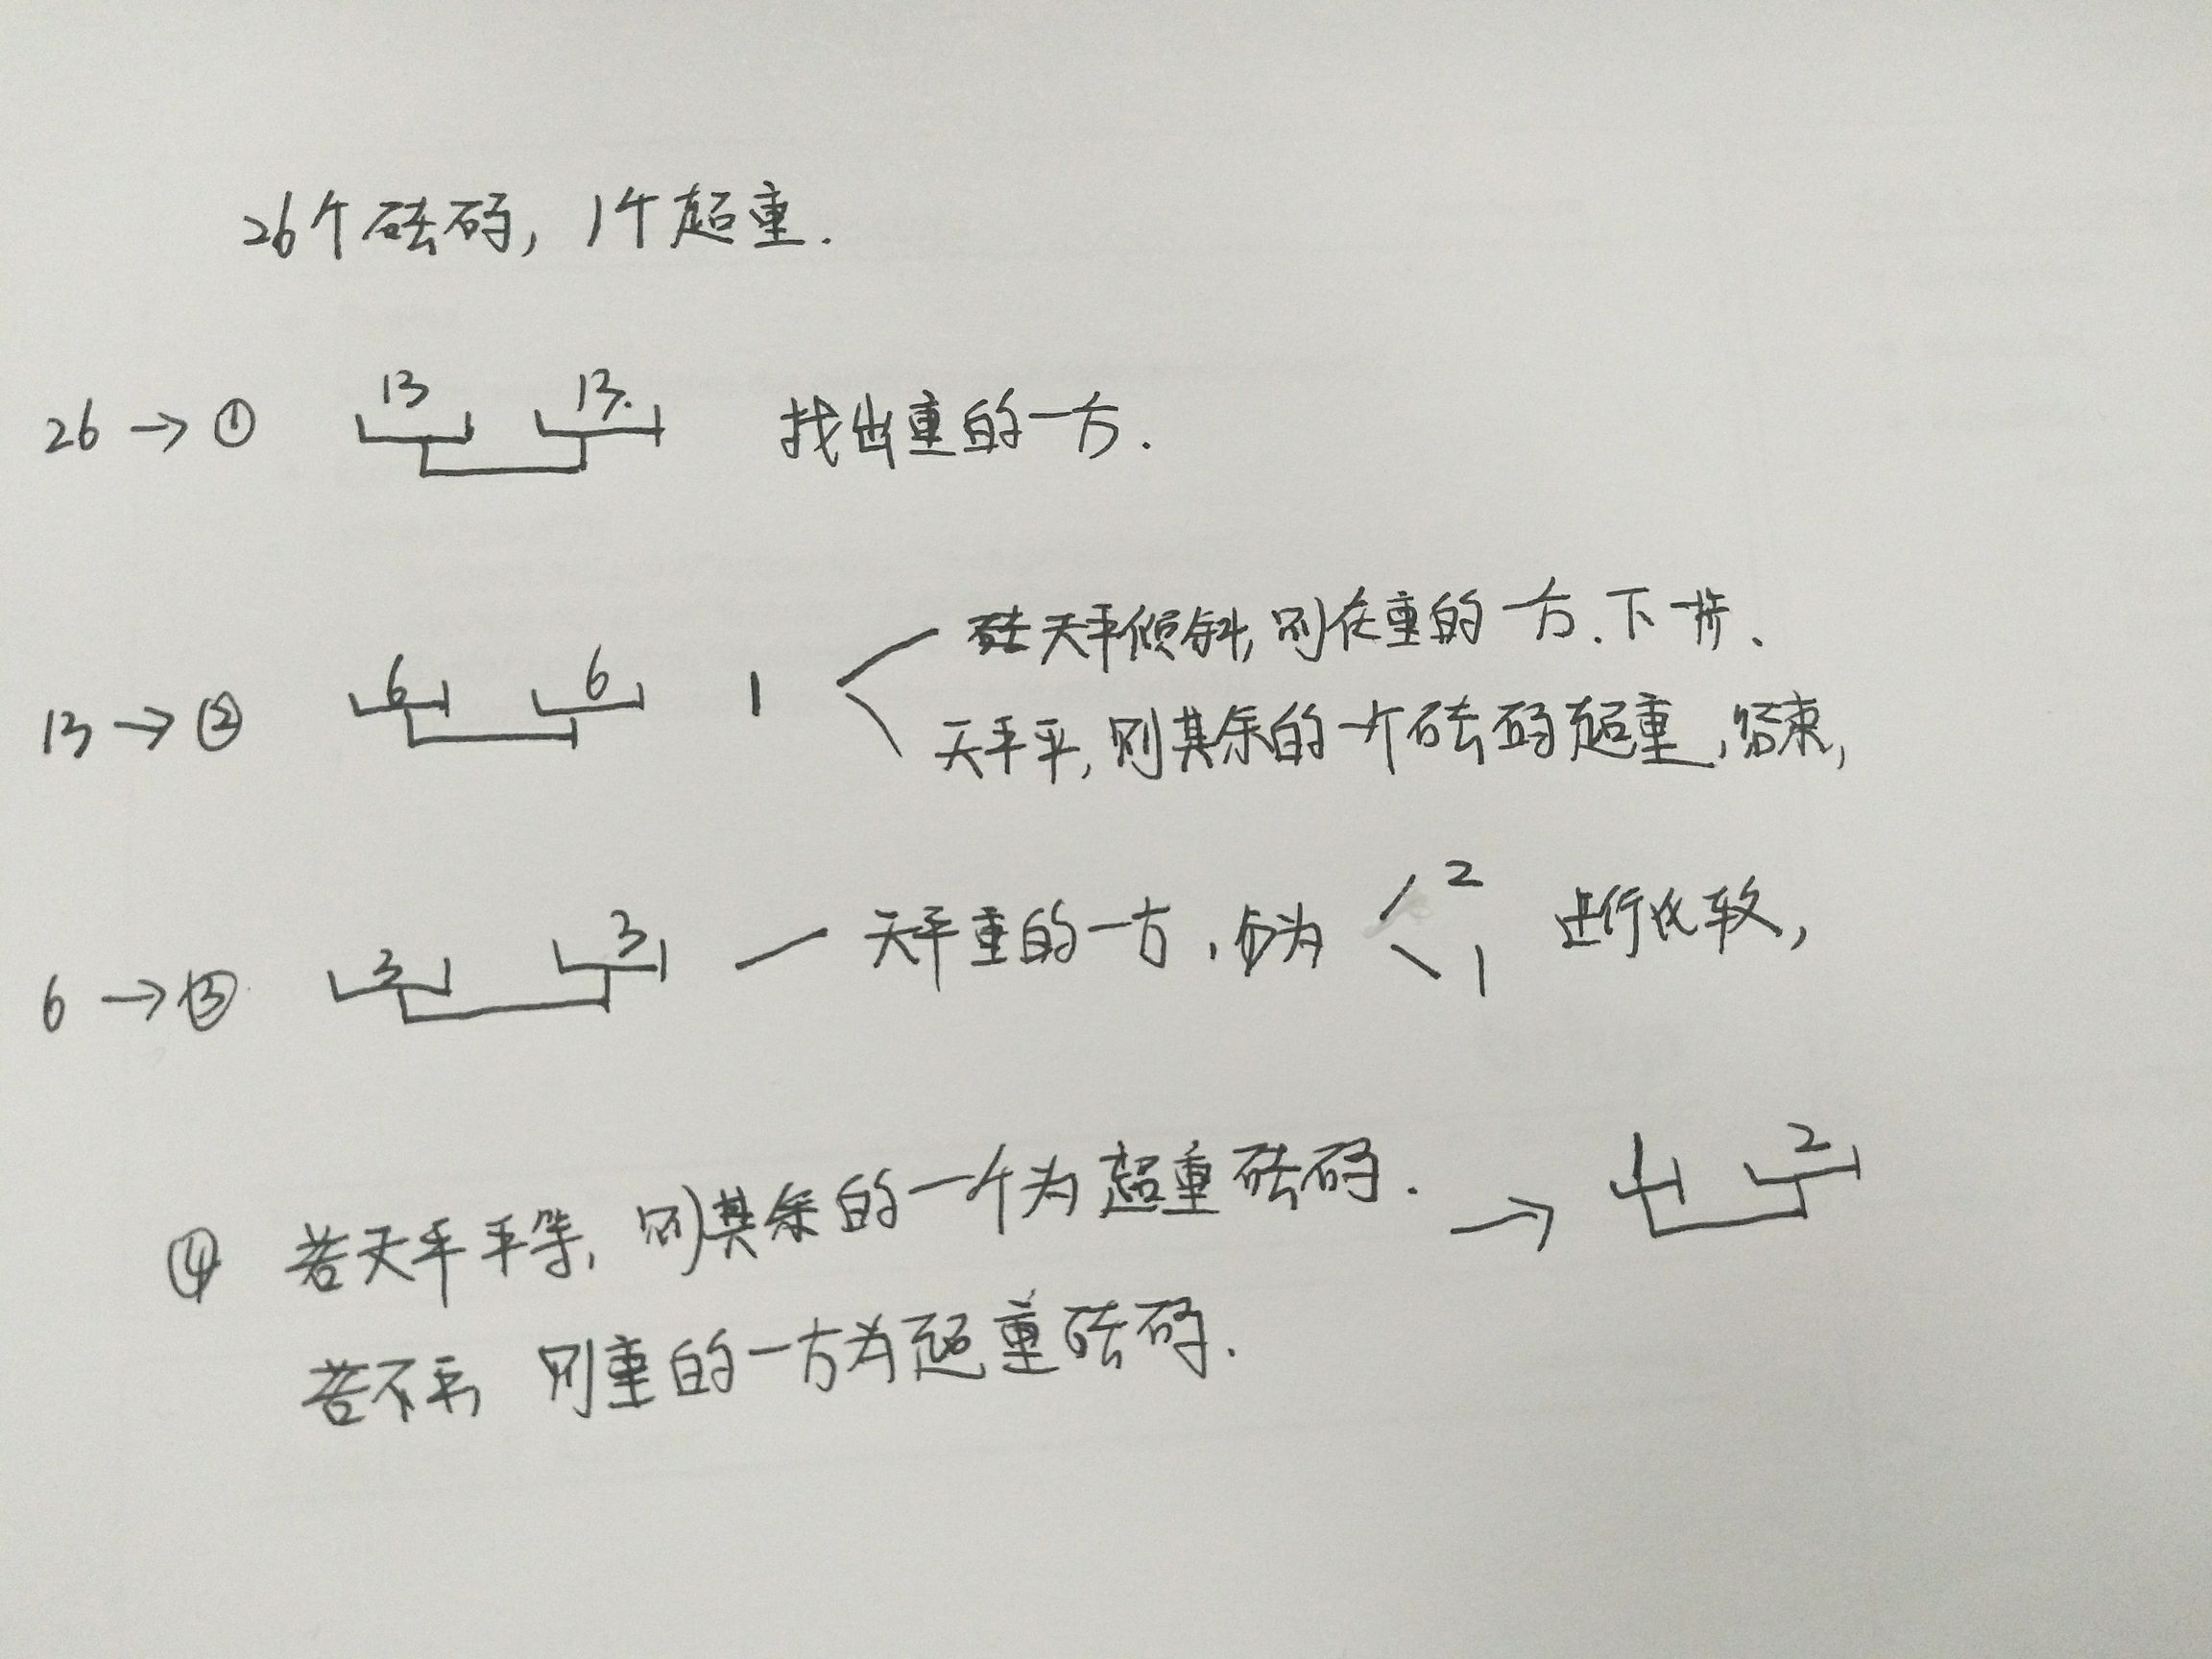 26个砝码，1个超重.
26 → ① 13 13. 找出重的一方.
13 → ② 6 6 1 天平倾斜，则在重的一方.下一步、
天平平，则其余的一个砝码超重，结束，
6 → ③ 3 3 — 天平重的一方，分为 2 1 进行比较，
④ 若天平平等，则其余的一个为超重砝码. → 1 2
若不平，则重的一方为超重砝码.